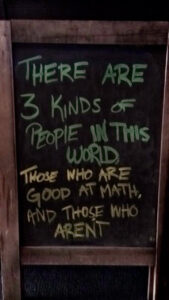 THERE ARE
3 KINDS OF
PEOPLE IN THIS
WORLD.
THOSE WHO ARE
GOOD AT MATH,
AND THOSE WHO
ARENT